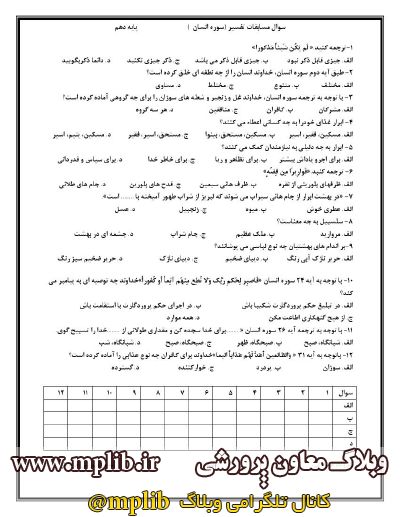 سوال مسابقات تفسیر (سوره انسان ) پایه دهم
۱-ترجمه کنید « لَم یَکُن شَیئاً مَذکورا»؟
الف. چیزی قابل ذکر نبود ب. چیزی قابل ذکر می باشد ج. ذکر چیزی نکنید د. دائما ذکربگویید
۲-طبق آیه دوم سوره انسان، خداوند انسان را از چه نطفه ای خلق کرده است؟
الف. مختلف ب. متنوع ج. مختلط د. مساوی
۳- با توجه به ترجمه سوره انسان، خداوند غل و زنجیر و شعله های سوزان را برای چه گروهی آماده کرده است؟
الف. مشرکان ب. کافران ج. منافقین د. هر سه گروه
۴- ابرار غذای خود را به چه کسانی اعطاء می کنند؟
الف. مسکین، فقیر، اسیر ب. مسکین، مستحق، بینوا ج. مستحق، اسیر، فقیر د. مسکین، یتیم، اسیر
۵- ابرار به چه دلیلی به نیازمندان کمک می کنند؟
الف. برای اجر و پاداش بیشتر ب. برای تظاهر و ریا ج. برای خاطر خدا د. برای سپاس و قدردانی
۶- ترجمه کنید «قَواریرا مِن فِضَّهٍ»
الف. ظرفهای بلورینی از نقره ب. ظرف هائی سیمین ج. قدح های بلورین د. جام های طلائی
۷- «در بهشت ابرار از جام هائی سیراب می شوند که لبریز از شراب طهور آمیخته با ...... است»
الف. عطری خوش ب. میوه ج. زنجبیل د. عسل
۸- سلسبیل به چه معناست؟
الف. مروارید ب. ملک عظیم ج. جام شراب د. چشمه ای در بهشت
۹-بر اندام های بهشتیان چه نوع لباسی می پوشانند؟
الف. حریر نازک آبی رنگ ب. دیبای ضخیم ج. دیبای نازک د. حریر ضخیم سبز رنگ
۱۰- با توجه به آیه ۲۴ سوره انسان «فَاصبِر لِحُکمِ رَبِّکَ وَلا تُطِع مِنهُم آثِماً أَو کَفُوراً»خداوند چه توصیه ای به پیامبر می
کند؟
الف. در تبلیغ حکم پروردگارت شکیبا باش ب. در اجرای حکم پروردگارت با استقامت باش
ج. از هیچ گنهکاری اطاعت مکن د. همه موارد
۱۱- با توجه به ترجمه آیه ۲۶ سوره انسان « ...... برای خدا سجده کن و مقداری طولانی از ...... خدا را تسبیح گوی.
الف. شبانگاه، صبح ب. صبحگاه، ظهر ج. صبحگاه، صبح د. شبانگاه، شب
۱۲- باتوجه به آیه ۳۱ « والظالمین أعدَّ لَهُم عَذاباً ألیما»خداوند برای کافران چه نوع عذابی را آماده کرده است؟
الف. سوزان ب. پردرد ج. خوارکننده د. گسترده
سوال ۱ ۲ ۳ ۴ ۵ ۶ ۷ ۸ ۹ ۱۰ ۱۱ ۱۲
الف
ب
ج
د
وبلاگ معاون پرورشی www.mplib.ir
کانال تلگرامی وبلاگ @mplib